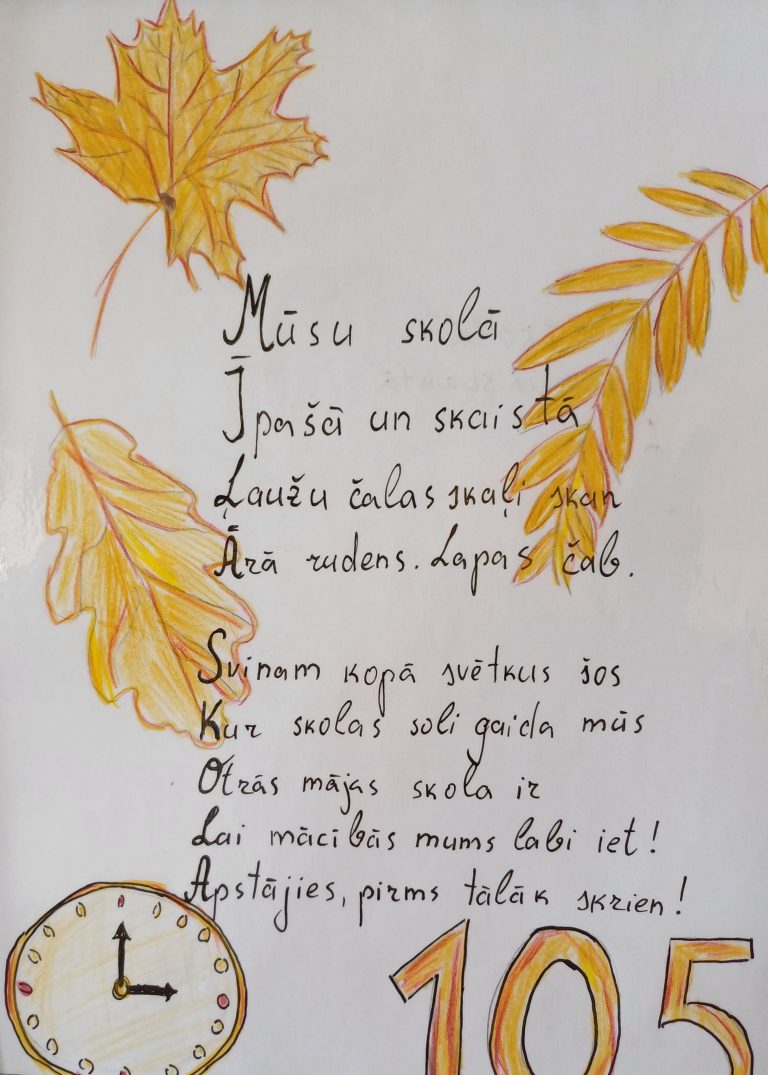 Mūsu skolā
Īpašā un skaistā
Ļaužu čalas skaļi skan
Ārā rudens. Lapas čab.
Svinam kopā svētkus šos
Kur skolas soli gaida mūs
Otrās mājas skola ir
Lai mācībās mums labi iet!
Apstājies, pirms tālāk skrien!
105